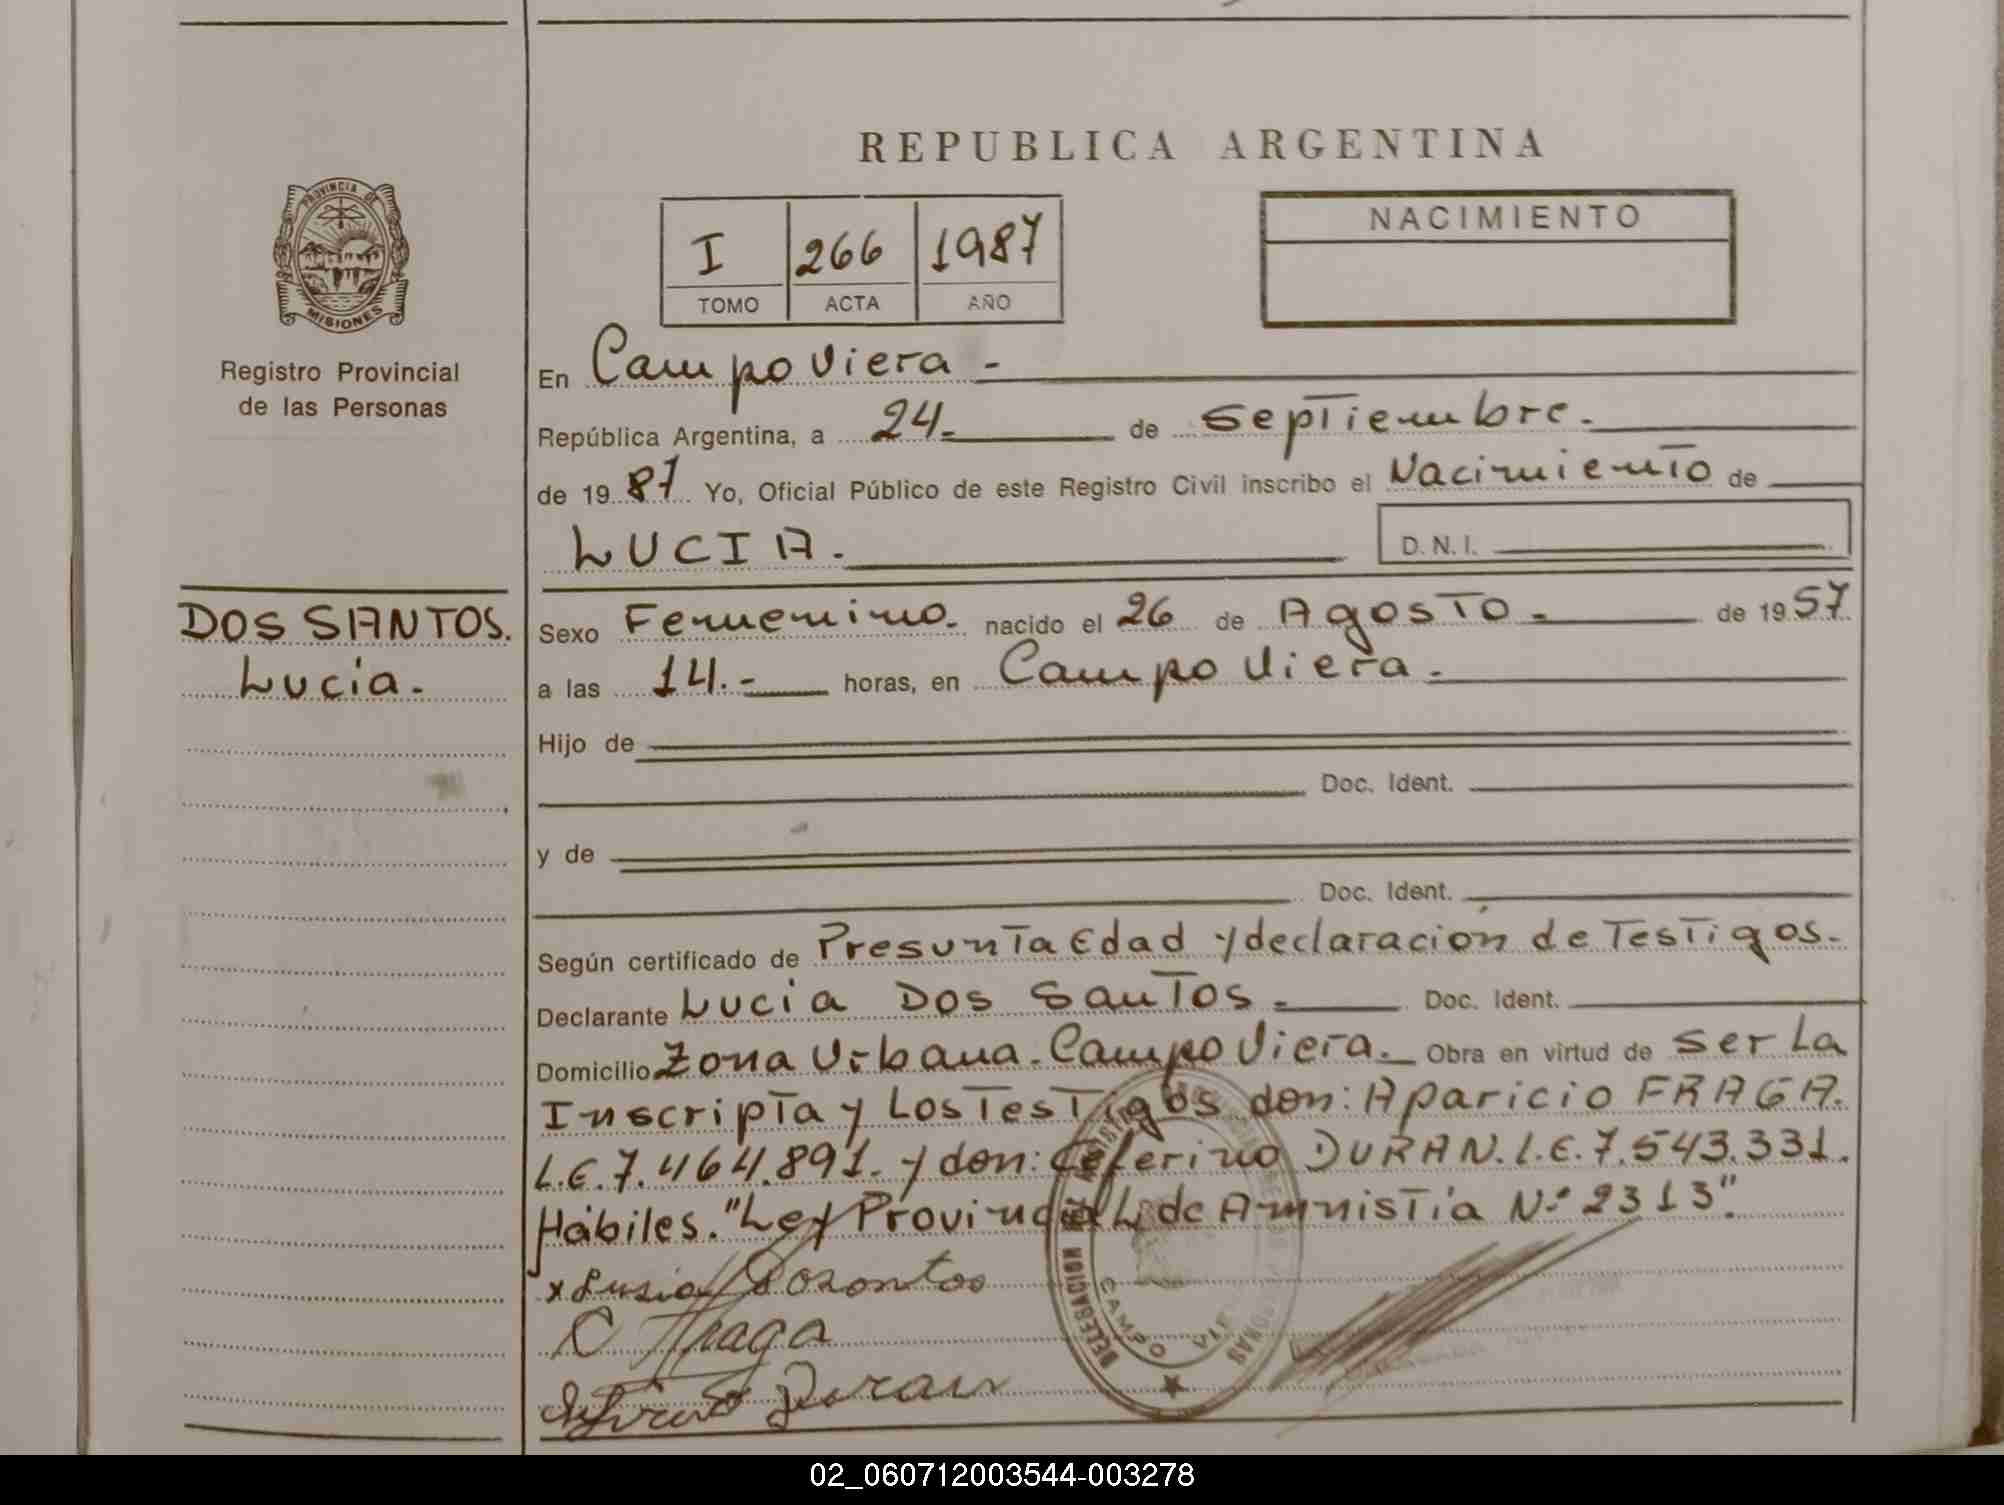 REPUBLICA ARGENTINA
PROVINCIA DE
MISIONES
Registro Provincial
de las Personas
I 266 1987
TOMO ACTA AÑO
NACIMIENTO
En Campo Viera -
República Argentina, a 24.- de Septiembre.
de 19 87 Yo, Oficial Público de este Registro Civil inscribo el Nacimiento de
LUCIA.
D. N. I.
DOS SANTOS.
Lucía.
Sexo Femenino. nacido el 26 de Agosto.- de 19 57
a las 14.- horas, en Campo Viera.
Hijo de
Doc. Ident.
y de
Doc. Ident.
Según certificado de Presunta Edad y declaración de Testigos.
Declarante Lucia Dos Santos.- Doc. Ident.
Domicilio Zona Urbana. Campo Viera. Obra en virtud de ser La
Inscripta y Los Testigos don: Aparicio FRAGA.
L.E. 7.464.891. y don: Ceferino DURAN. L.E. 7.543.331.
Hábiles. "Ley Provincial de Amnistía Nº 2313".
x Lusia Dosontos
Fraga
Duran
DELEGACION
CAMPO VIE
02_060712003544-003278